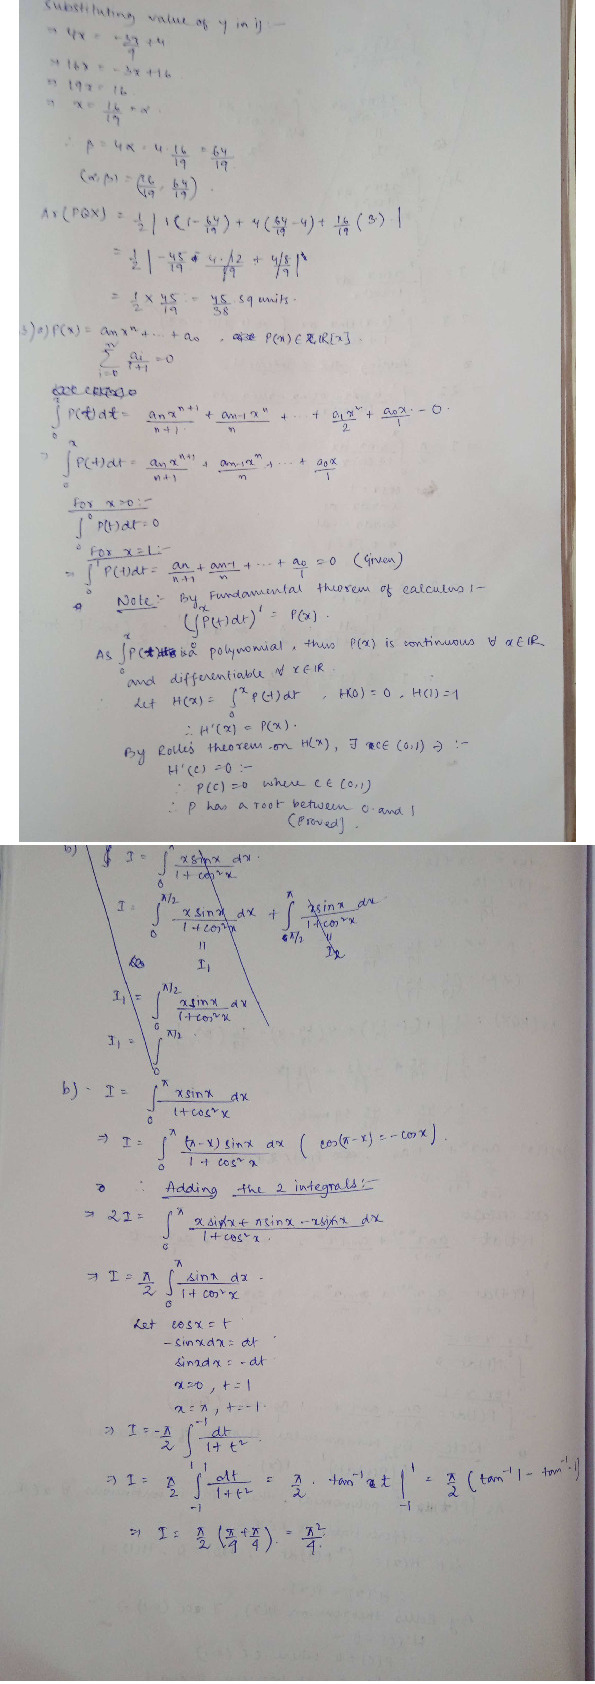 substituting value of y in i) :-
⇒ 4x = -3x/9 + 4
⇒ 16x = -3x + 16
⇒ 19x = 16
⇒ x = 16/19 = α
∴ β = 4α = 4·16/19 = 64/19
(α, β) = (16/19, 64/19)
Ar(PQX) = 1/2 | 1(1 - 64/19) + 4(64/19 - 4) + 16/19 (3) |
= 1/2 | -45/19 - 4·12/19 + 48/19 |
= 1/2 × 45/19 = 45/38 sq units.
3) a) P(x) = aₙxⁿ + ... + a₀ , P(x) ∈ ℝ[x].
∑ᵢ₌₀ⁿ aᵢ/(i+1) = 0
∫₀ˣ P(t)dt = aₙxⁿ⁺¹/(n+1) + aₙ₋₁xⁿ/n + ... + a₁x²/2 + a₀x/1 - 0.
⇒ ∫₀ˣ P(t)dt = aₙxⁿ⁺¹/(n+1) + aₙ₋₁xⁿ/n + ... + a₀x/1
For x=0 :-
∫₀⁰ P(t)dt = 0
For x=1 :-
= ∫₀¹ P(t)dt = aₙ/(n+1) + aₙ₋₁/n + ... + a₀/1 = 0 (Given)
Note :- By Fundamental theorem of calculus :-
(∫₀ˣ P(t)dt)' = P(x).
As ∫₀ˣ P(t) is a polynomial, thus P(x) is continuous ∀ x∈ℝ
and differentiable ∀ x∈ℝ.
Let H(x) = ∫₀ˣ P(t)dt , H(0) = 0 , H(1) = 1
∴ H'(x) = P(x).
By Rolle's theorem on H(x), ∃ c∈(0,1) ⇒ :-
H'(c) = 0 :-
∴ P(c) = 0 where c∈(0,1)
∴ P has a root between 0 and 1
(Proved).
b) I = ∫₀^π x sinx dx/(1+cos²x).
I = ∫₀^π/2 x sinx dx/(1+cos²x) + ∫_π/2^π x sinx dx/(1+cos²x)
= I₁ = I₂
I₁ = ∫₀^π/2 x sinx dx/(1+cos²x)
I₁ = ∫₀^π/2
b) - I = ∫₀^π x sinx dx/(1+cos²x)
⇒ I = ∫₀^π (π-x) sinx dx/(1+cos²x) ( cos(π-x) = -cosx ).
∴ Adding the 2 integrals :-
⇒ 2I = ∫₀^π x sinx + π sinx - x sinx dx/(1+cos²x).
⇒ I = π/2 ∫₀^π sinx dx/(1+cos²x).
Let cosx = t
-sinxdx = dt
sinxdx = -dt
x=0, t=1
x=π, t=-1.
⇒ I = -π/2 ∫₁⁻¹ dt/(1+t²)
⇒ I = π/2 ∫₋₁¹ dt/(1+t²) = π/2 · tan⁻¹ t |₋₁¹ = π/2 (tan⁻¹1 - tan⁻¹-1)
⇒ I = π/2 (π/4 + π/4) = π²/4.